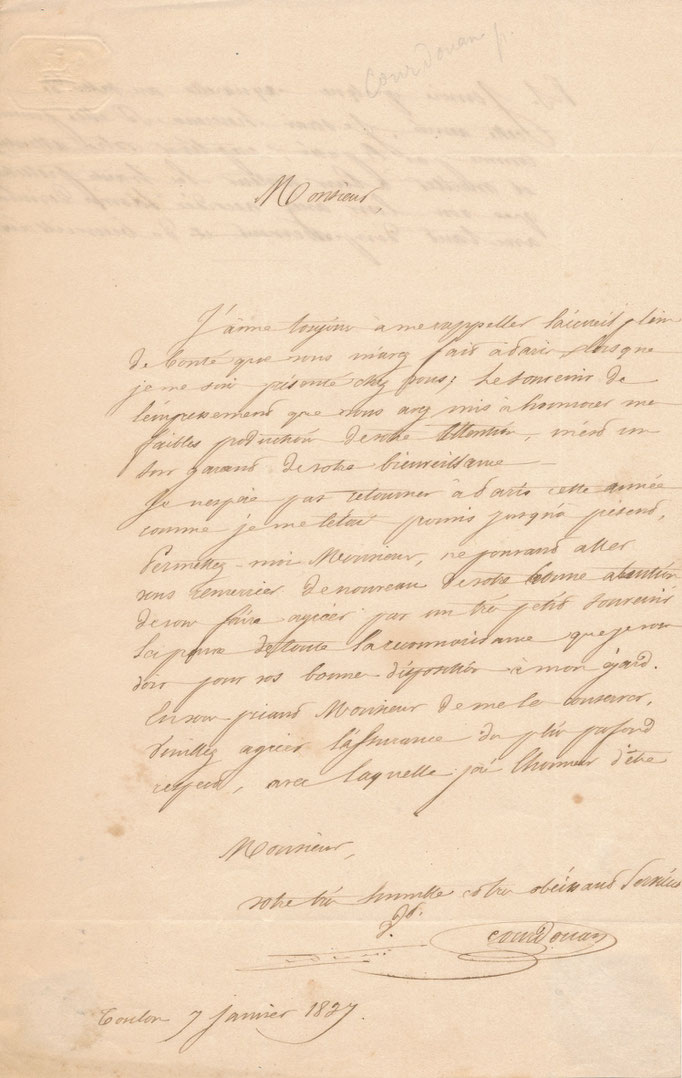 Courdouan p.
Monsieur,
J'aime toujour à me rappeller l'accueil plein
de bonté que vous m'avez fait à Paris lorsque
je me sui présenté chez vous; le souvenir de
l'empressement que vous avez mis à honnorer me
faibles production de votre attention, m'est un
sur garand de votre bienveillance –
Je n'espère pas retourner à Paris cette année
comme je me l'étai promis jusqu'à présend,
Permettez-moi Monsieur, ne pouvand aller
vous remercier de nouveau de votre bonne attention
de vou faire agréer par un très petit souvenir
la preuve de toute la reconnoissance que je vou
doi pour vos bonne disposition à mon égard.
En vou priand Monsieur de me le conserver,
veuillez agréer l'assurance du plu profond
respect, avec laquelle j'ai l'honneur d'être
Monsieur,
votre trè humble et trè obéissand Serviteur
Courdouan
Toulon 7 janvier 1837.